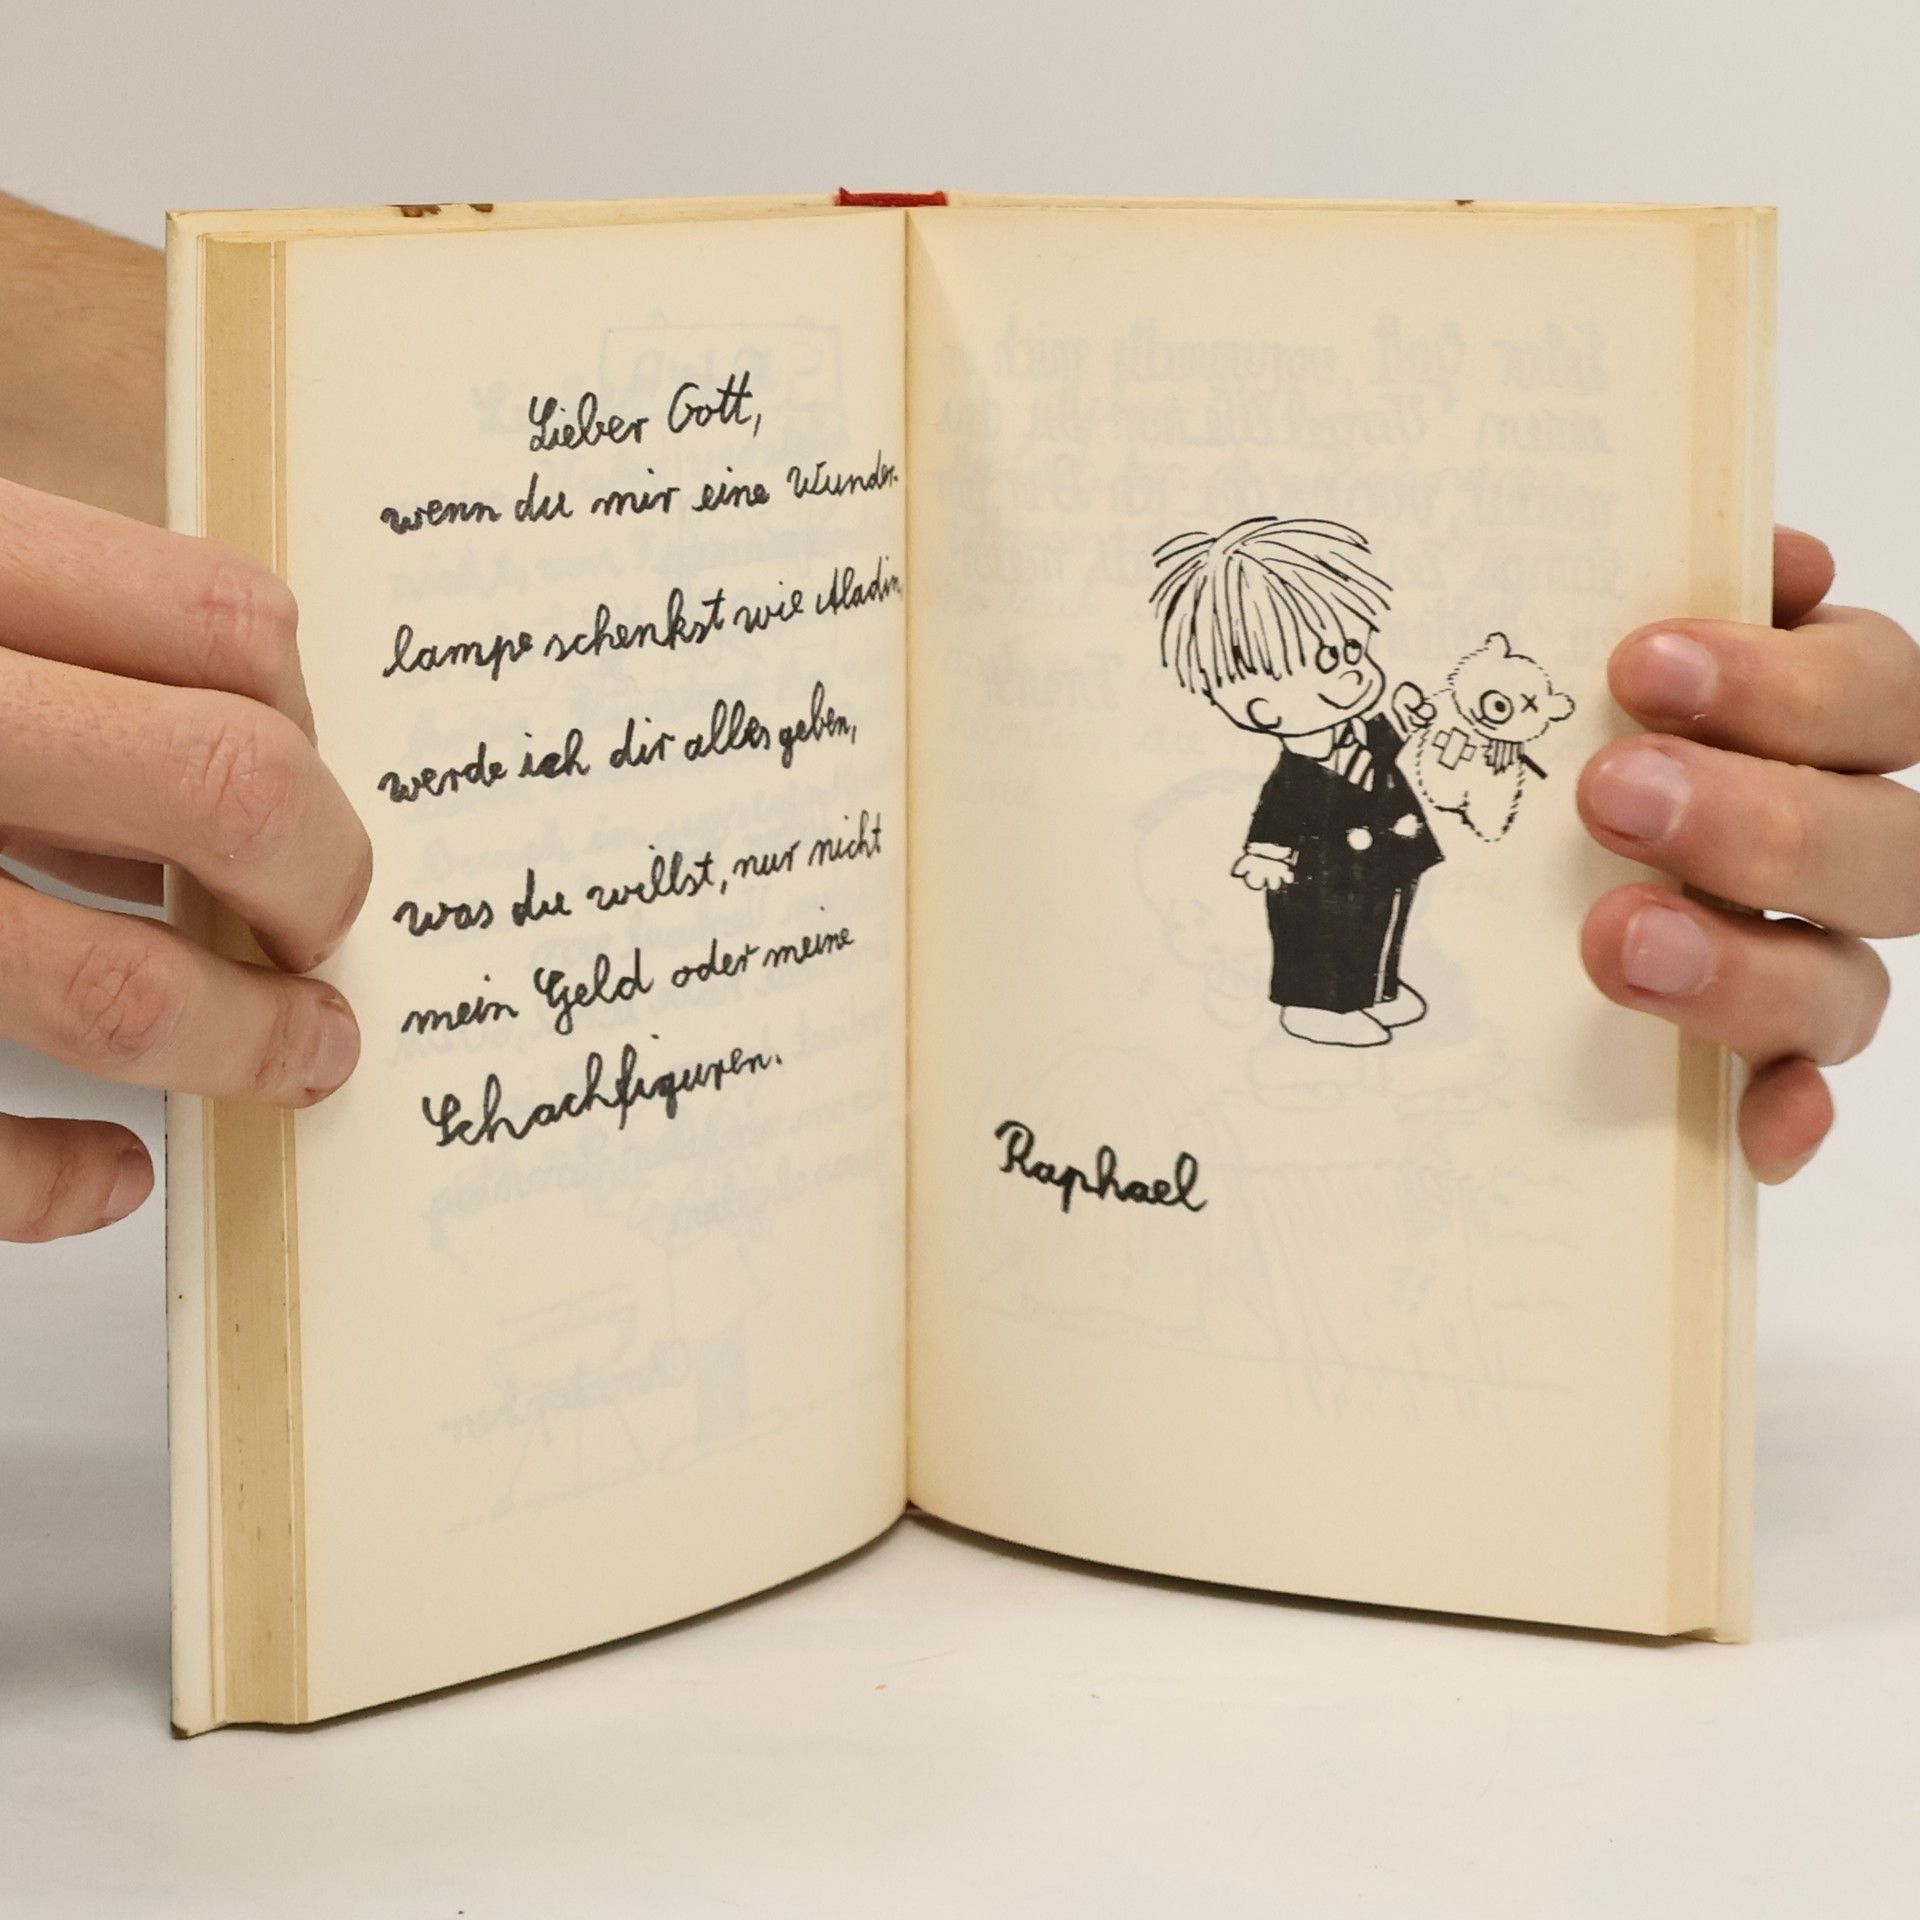 Lieber Gott,
wenn du mir eine Wunder-
lampe schenkst wie Aladin,
werde ich dir alles geben,
was du willst, nur nicht
mein Geld oder meine
Schachfiguren.
Raphael